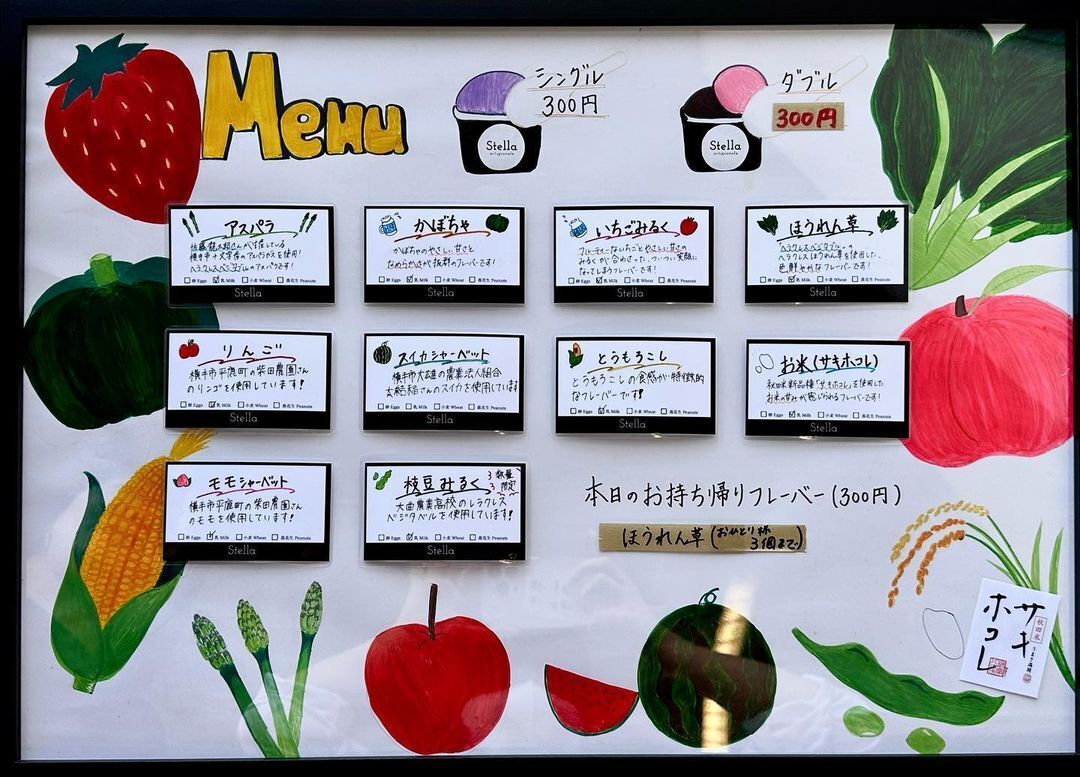 Menu
シングル
300円
ダブル
300円
Stella
artigianale
Stella
artigianale
アスパラ
使用!
ヘラクレスベジタブルのアスパラです!
卵 Eggs 乳 Milk 小麦 Wheat 落花生 Peanuts
Stella
かぼちゃ
かぼちゃのやさしい甘さと
なめらかさが抜群のフレーバーです!
卵 Eggs 乳 Milk 小麦 Wheat 落花生 Peanuts
Stella
いちごみるく
フルーティーないちごとやさしい甘さの
みるくが合わさった、ついつい笑顔に
なってしまうフレーバーです!
卵 Eggs 乳 Milk 小麦 Wheat 落花生 Peanuts
Stella
ほうれん草
ヘラクレスほうれん草を使用した、
色鮮やかなフレーバーです!
卵 Eggs 乳 Milk 小麦 Wheat 落花生 Peanuts
Stella
りんご
横手市平鹿町の柴田農園さん
のリンゴを使用しています!
卵 Eggs 乳 Milk 小麦 Wheat 落花生 Peanuts
Stella
スイカシャーベット
横手市大雄の農業法人組合
さんのスイカを使用しています
卵 Eggs 乳 Milk 小麦 Wheat 落花生 Peanuts
Stella
とうもろこし
とうもろこしの食感が特徴的
なフレーバーです!
卵 Eggs 乳 Milk 小麦 Wheat 落花生 Peanuts
Stella
お米(サキホコレ)
秋田米新品種「サキホコレ」を使用した
お米の甘みが感じられるフレーバーです!
卵 Eggs 乳 Milk 小麦 Wheat 落花生 Peanuts
Stella
モモシャーベット
横手市平鹿町の柴田農園さん
のモモを使用しています!
卵 Eggs 乳 Milk 小麦 Wheat 落花生 Peanuts
Stella
枝豆みるく
数量
限定
大曲農業高校のヘラクレス
ベジタベルを使用しています!
卵 Eggs 乳 Milk 小麦 Wheat 落花生 Peanuts
Stella
本日のお持ち帰りフレーバー(300円)
ほうれん草(おひとり様
3個まで)
サキ
ホコレ
秋田米